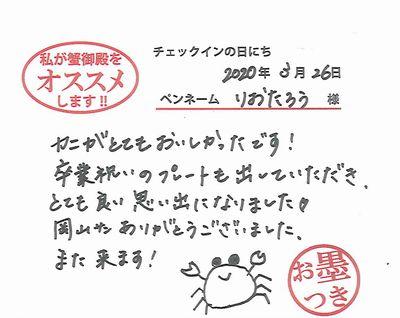 私が蟹御殿を
オススメ
します!!
チェックインの日にち
2020年 3月 26日
ペンネーム りおたろう 様
カニがとてもおいしかったです!
卒業祝いのプレートも出していただき、
とても良い思い出になりました♪
岡山サン ありがとうございました。
また 来ます!
お墨
つき